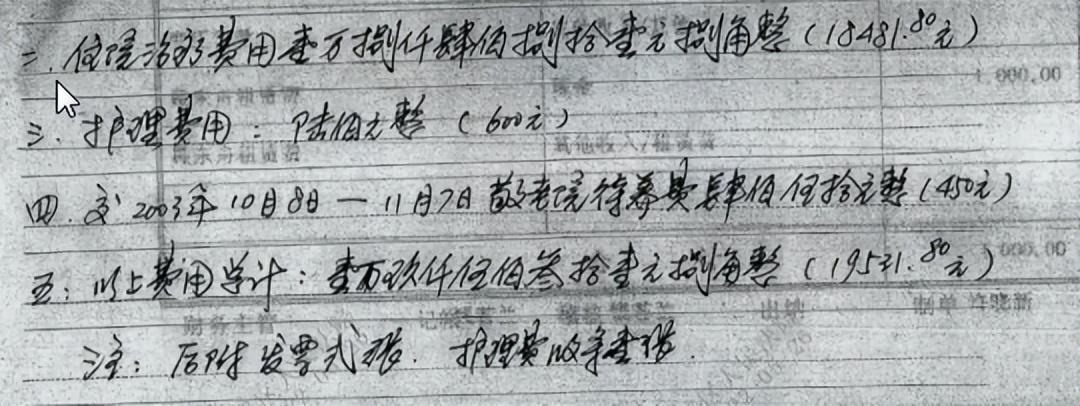 二. 住院治疗费用壹万捌仟肆佰捌拾壹元捌角整(18481.80元)
1 000.00
三. 护理费用: 陆佰元整 (600元)
其他收入/租赁费
四. 交2003年10月8日—11月7日敬老院待养费肆佰伍拾元整(450元)
五: 以上费用总计: 壹万玖仟伍佰叁拾壹元捌角整 (19531.80元)
000.00
财务主管 记帐 出纳 制单 许晓新
注: 后附发票弍张. 护理费收条壹张.